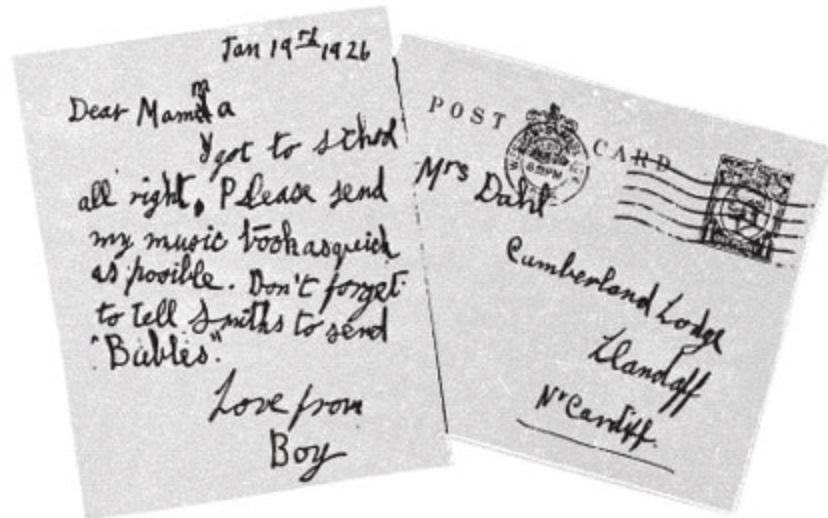 Jan 19th 1926
Dear Mamma
I got to school
all right. Please send
my music book as quick
as posible. Don't forget
to tell Smiths to send
"Bubles".
Love from
Boy
POST CARD
Mrs Dahl
Cumberland Lodge
Llandaff
Nr Cardiff.